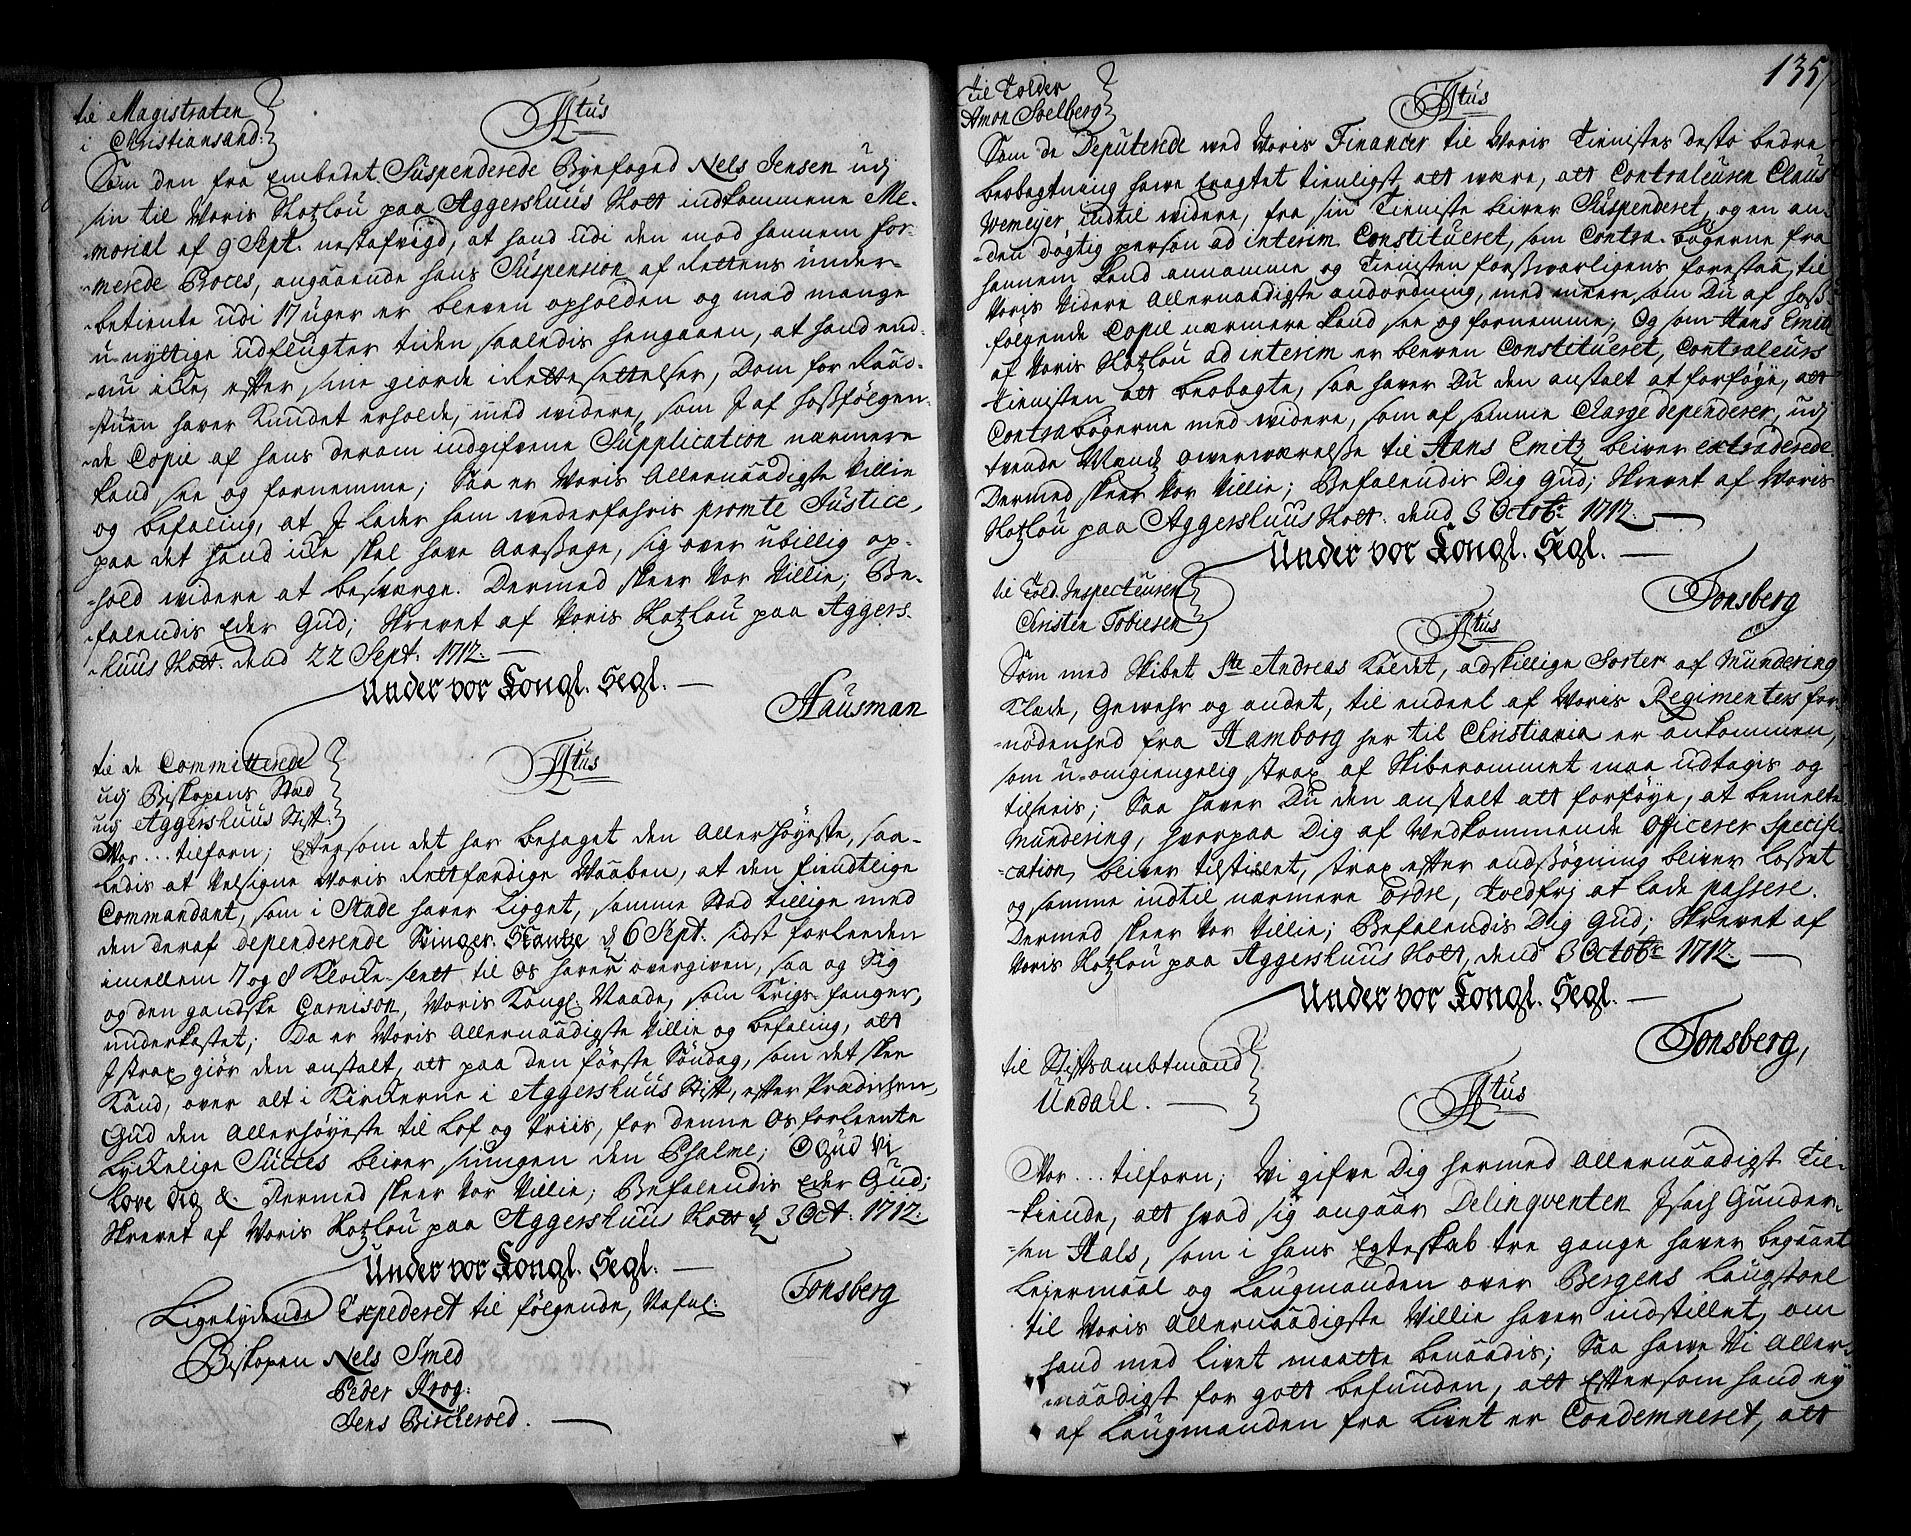 til Magistraten
i Christiansand:
Ftus
Som den fra Embedet Suspenderede Byefoged Nels Jensen udj
sin til Voris Slotzlou paa Aggershuus Slott indkommene Me-
-morial af 9 Sept. nestafvigd, at hand udi den mod hannem for-
-merede Proces, angaaende hans Suspension af Rettens under-
-betiente udi 17 uger er bleven opholden og med mange
u-nyttige udflugter tiden saaledis hengaaen, at hand end-
nu icke, efter sine giorde i Rettesettelser, Dom for Raad-
stuen haver kundet erholde, med widere, som J af hossfølgen-
-de Copie af hans derom indgifvene Supplication nærmere
kand see og fornemme; Saa er Voris Allernaadigste Villie
og befaling, at J lader ham wederfahris promte Justice,
paa det hand icke skal have Aarssage, sig over ubillig op-
-hold widere at besværge. Dermed skeer Vor Villie; Be-
falendis Eder Gud; Skrevet af Voris Slotzlou paa Aggers-
-huus Slott. dend 22 Sept. 1712.
Under vor Kongl. Segl.
Hausman
til de Committerede
udj Biskopens Sted
udj Aggershuus Stift:
Ftus
Vor... tilforn; Eftersom det har behaget den Allerhøyeste, saa-
ledis at Velsigne Voris Retfærdige Vaaben, at den fiendtlige
Commandant, som i Stade haver Ligget, samme Stad tillige med
den deraf dependerende Schinger Skantze d 6 Sept. sidst forleeden
imellem 7 og 8 Klocke-slett til Os haver overgiven, saa og Sig
og den gandske Garnison, Voris Kongl. Naade, som Krigs-fanger,
underkastet; Da er Voris Allernaadigste Villie og befaling, att
J strax giør den anstalt, att paa den første Søndag, som det skee
kand, over alt i Kirckerne i Aggershuus Stift, efter Prædichen,
Gud den Allerhøyeste til Lof og Priis, for denne Os forleente
lyckelige Succes bliver siungen den Psalme; O Gud Vi
Love dig &. Dermed skeer Vor Villie; Befalendis Eder Gud;
Skrevet af Voris Slotzlou paa Aggershuus Slott d 3 Oct: 1712:
Under vor Kongl. Segl.
Tonsberg
Ligelydende Expederet til følgende, Nafnl:
Biskopen Nels Smed
Peder Krog:
Jens Bircherod.
135
til Tolder
Amon Soelberg
Ftus
Som de Deputerede ved Voris Financer til Voris Tienistes desto bedre
beobagtning have eragtet tienligst att være, att Contraleuren Claus
Vemejer indtil widere, fra sin Tieniste bliver Suspenderet, og en an-
-den døgtig person ad interim Constitueret, som Contra-bøgerne fra
hannem kand annamme og Tienisten forsswarligens forestaa, til
Voris Videre Allernaadigste andordning, med meere som Du af hoss-
følgende Copie nærmere kand see og fornemme; Og som Hans Emitz
af Voris Slotzlou ad interim er bleven Constitueret, Contraleurs
tienisten att beobagte, saa haver Du den anstalt at forføye, att
Contrabøgerne med widere, som af samme Charge dependerer, udj
tvende Mendz overværelsse til Hans Emitz bliver extraderede.
Dermed skeer Vor Villie; Befalendis Dig Gud; Skrevet af Voris
Slotzlou paa Aggershuus Slott. dend 3 Octobr 1712.
Under vor Kongl. Segl.
Tonsberg
til Told-Inspecteuren
Christen Tobiesen
Ftus
Som med Skibet Ste Andreas Kaldet, adskillige Sorter af Mundering
Klæde, Gewehr og andet, til endeel af Voris Regimenters for-
-nødenhed fra Hamborg her til Christiania er ankommen,
som u-omgiengelig strax af Skiberommet maa udtagis og
tilseis; Saa haver Du den anstalt att forføye, at bemelte
Mundering, hvorpaa Dig af Vedkommende Officerer Specifi-
-cation bliver tilstillet, strax efter andssøgning bliver Losset
og samme indtil nærmere Ordre, Toldfrj at lade passere.
Dermed skeer Vor Villie; Befalendis Dig Gud; Skrevet af
Voris Slotzlou paa Aggershuus Slott, dend 3 Octobr 1712.
Under vor Kongl. Segl.
Tonsberg,
til Stiftsambtmand
Undahl.
Ftus
Vor... tilforn; Vi gifve Dig hermed Allernaadigst Til-
-kiende, att hvad sig angaar Delinqventen Isach Gunder-
-sen Hals, som i hans Egteskab tre gange haver begaaet
Leiermaal og Laugmanden over Bergens Laugstoel
til Voris Allernaadigste Villie haver indstillet, om
hand med Livet maatte benaadis; Saa have Vi Aller-
naadigst for gott befunden, att Eftersom hand ej
af Laugmanden fra Livet er Condemneret, att